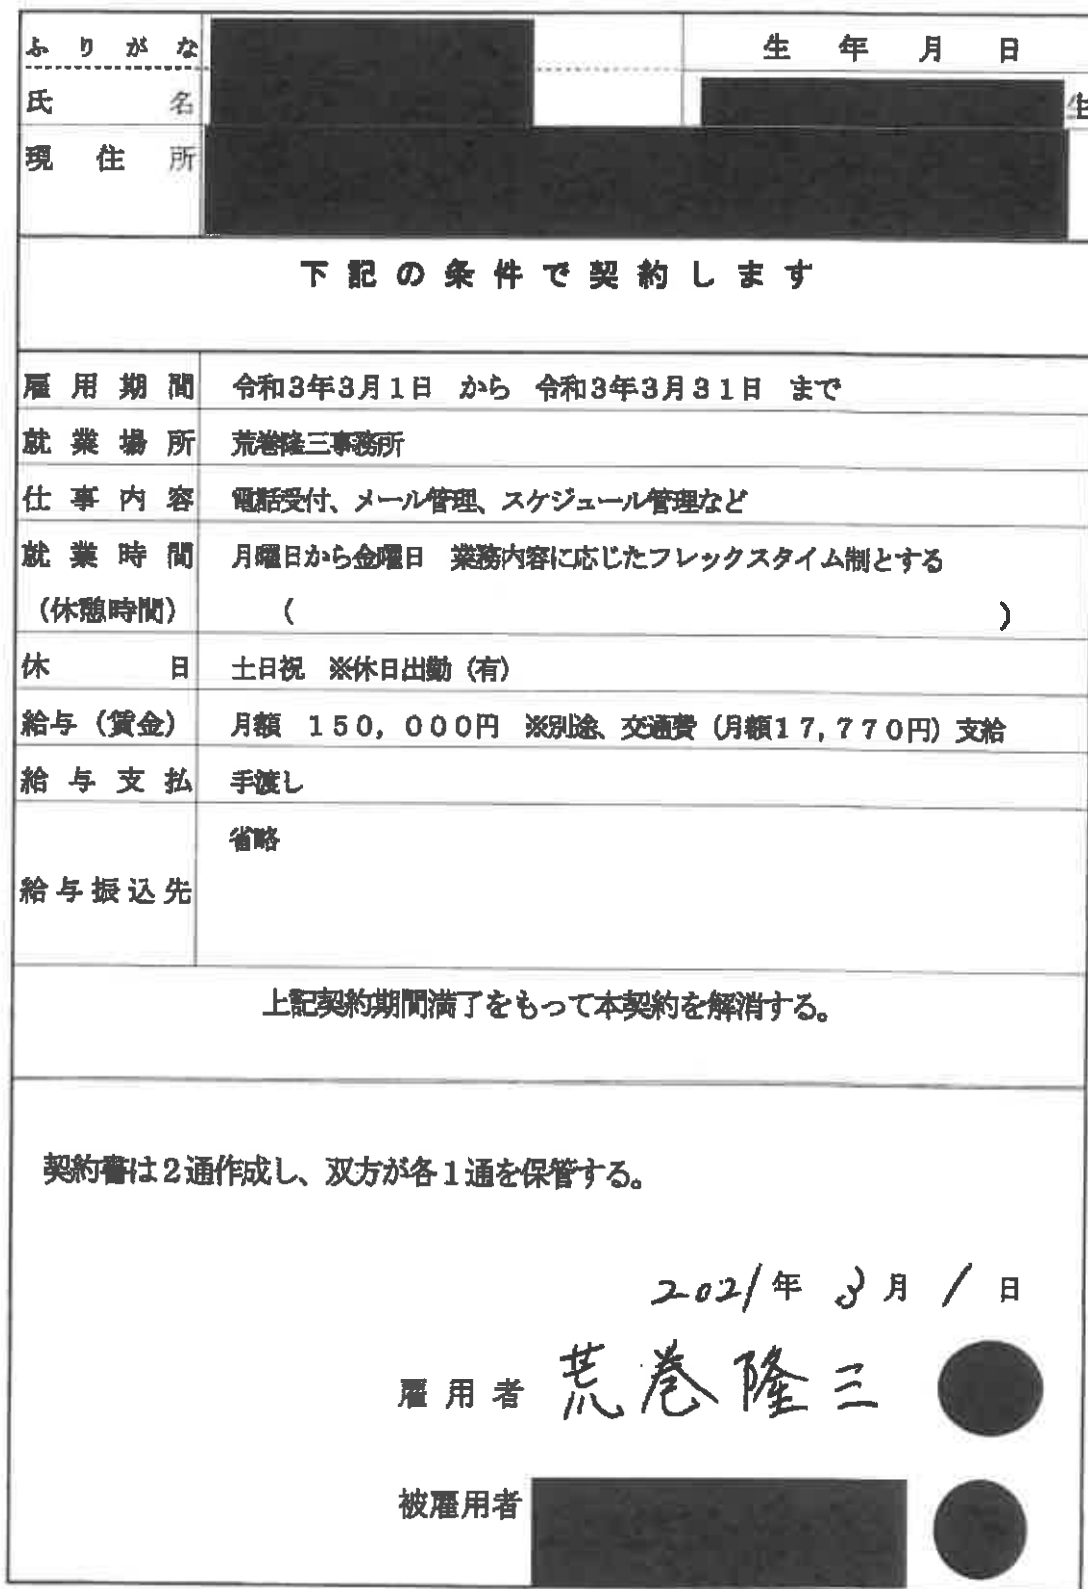 ふりがな
生年月日
氏名
生
現住所
下記の条件で契約します
雇用期間 令和3年3月1日 から 令和3年3月31日 まで
就業場所 荒巻隆三事務所
仕事内容 電話受付、メール管理、スケジュール管理など
就業時間 月曜日から金曜日 業務内容に応じたフレックスタイム制とする
(休憩時間) ( )
休日 土日祝 ※休日出勤(有)
給与(賃金) 月額 150,000円 ※別途、交通費(月額17,770円)支給
給与支払 手渡し
省略
給与振込先
上記契約期間満了をもって本契約を解消する。
契約書は2通作成し、双方が各1通を保管する。
2021年 3月 1日
雇用者 荒巻隆三
被雇用者